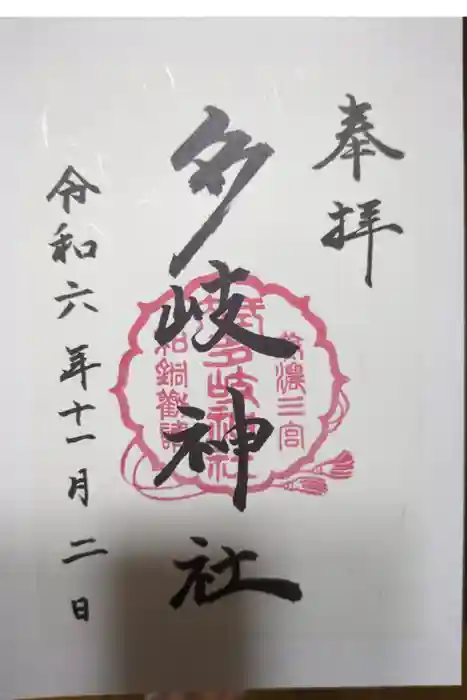 奉拝
多岐神社
美濃三宮
式内多岐神社
和銅勧請
令和六年十一月二日